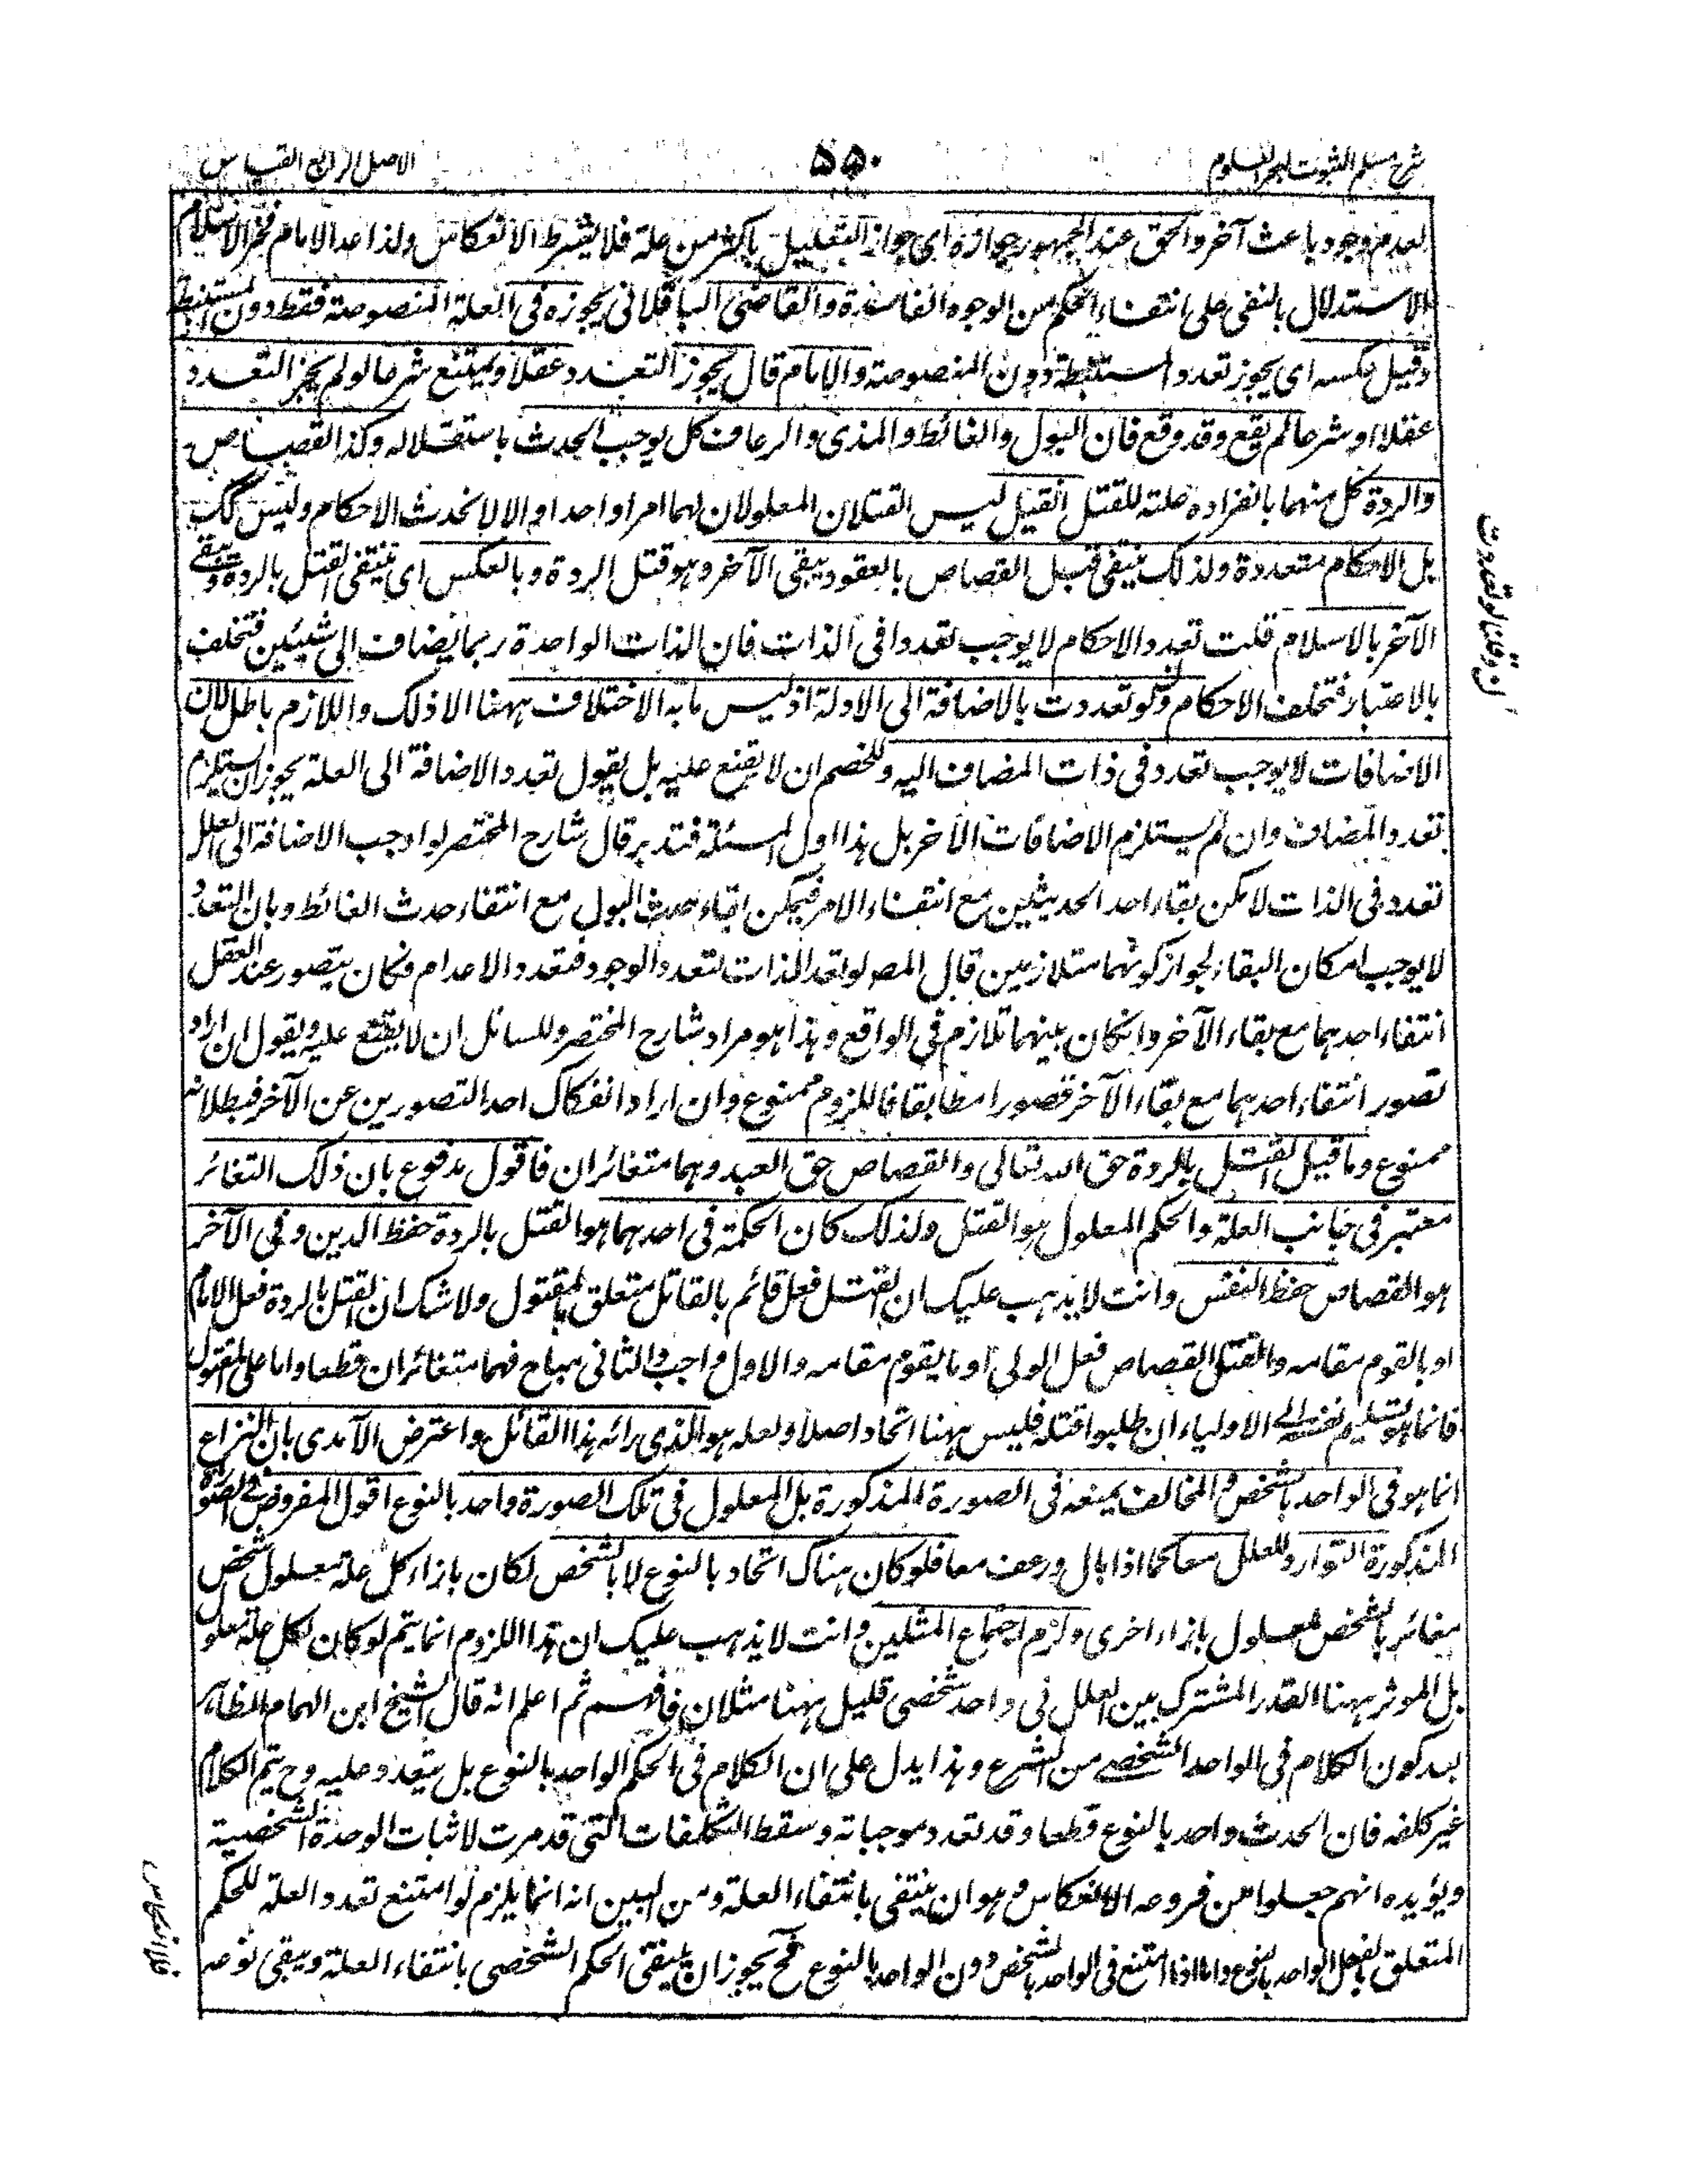 شرح مسلم الثبوت لبحر العلوم
۵۵۰
الاصل الرابع القياس
لعدم وجود باعث آخر والحق عند الجمهور جوازه اى جواز التعليل باكثر من علة فلا يشترط الانعكاس ولذا عد الامام فخر الاسلام
الاستدلال بالنفى على انتفاء الحكم من الوجوه الفاسدة والقاضى الباقلانى يجوزه فى العلة المنصوصة فقط دون المستنبطة
وقيل عكسه اى يجوز تعدد المستنبطة دون المنصوصة والامام قال يجوز التعدد عقلا ويمتنع شرعا لو لم يجز التعدد
عقلا او شرعا لم يقع وقد وقع فان البول والغائط والمذى والرعاف كل يوجب الحدث باستقلاله وكذا القصاص
والردة كل منهما بانفراده علة للقتل ان قيل ليس القتلان المعلولان لهما امرا واحدا والا لاتحدت الاحكام وليس كك
بل الاحكام متعددة ولذلك ينتفى قتل القصاص بالعفو ويبقى الآخر وهو قتل الردة وبالعكس اى ينتفى القتل بالردة ويبقى
الآخر بالاسلام قلت تعدد الاحكام لا يوجب تعددا فى الذات فان الذات الواحدة ربما يضاف الى شيئين فتختلف
بالاعتبار فتختلف الاحكام ولو تعددت بالاضافة الى الادلة اذ ليس ما به الاختلاف ههنا الا ذلك واللازم باطل لان
الاضافات لا يوجب تعدد فى ذات المضاف اليه وللخصم ان لا يقنع عليه بل يقول تعدد الاضافة الى العلة يجوز ان يستلزم
تعدد المضاف وان لم يستلزم الاضافات الأخر بل هذا اول المسئلة فتدبر قال شارح المختصر لو اوجب الاضافة الى العلل
تعدد فى الذات لامكن بقاء احد الحديثين مع انتفاء الامر فيمكن بقاء حدث البول مع انتفاء حدث الغائط وبان التعدد
لا يوجب امكان البقاء لجواز كونهما متلازمين قال المص لو تعد الذات لتعدد الوجود فتعدد الاعدام فكان يتصور عند العقل
انتفاء احدهما مع بقاء الآخر وان كان بينهما تلازم فى الواقع وهذا هو مراد شارح المختصر وللسائل ان لا يقنع عليه ويقول ان اراد
تصور انتفاء احدهما مع بقاء الآخر تصورا مطابقا فاللزوم ممنوع وان اراد انفكاك احد التصورين عن الآخر فبطلانه
ممنوع وما قيل القتل بالردة حق الله تعالى والقصاص حق العبد وهما متغائران فاقول مدفوع بان ذلك التغائر
معتبر فى جانب العلة والحكم المعلول هو القتل ولذلك كان الحكمة فى احدهما هو القتل بالردة حفظ الدين وفى الآخر
هو القصاص حفظ النفس وانت لا يذهب عليك ان القتل فعل قائم بالقاتل متعلق بالمقتول ولا شك ان القتل بالردة فعل الامام
او بالقوم مقامه والقتل القصاص فعل الولى او ما يقوم مقامه والاول واجب والثانى مباح فهما متغائران قطعا واما على المقتول
فانما هو تسليم نفسه الى الاولياء ان طلبوا قتله فليس ههنا اتحاد اصلا ولعله هو الذى رائه هذا القائل واعترض الآمدى بان النزاع
انما هو فى الواحد بالشخص والمخالف يمنعه فى الصورة المذكورة بل المعلول فى تلك الصورة واحد بالنوع اقول المفروض فى الصورة
المذكورة التوارد للعلل معا كما اذا بال ورعف معا فلو كان هناك اتحاد بالنوع لا بالشخص لكان بازاء كل علة معلول شخص
مغائر بالشخص لمعلول بازاء اخرى ولزم اجتماع المثلين وانت لا يذهب عليك ان هذا اللزوم انما يتم لو كان لكل علة معلول
بل المؤثر ههنا القدر المشترك بين العلل فى واحد شخصى فليس ههنا مثلان فافهم ثم اعلم انه قال الشيخ ابن الهمام الظاهر
بعد كون الكلام فى الواحد الشخصى من الشرع وهذا يدل على ان الكلام فى الحكم الواحد بالنوع بل يتعدد عليه وح يتم الكلام
غير كلفه فان الحدث واحد بالنوع قطعا وقد تعدد موجباته وسقط التكلفات التى قد مرت لاثبات الوحدة الشخصية
ويؤيده انهم جعلوا من فروعه الانعكاس وهو ان ينتفى بانتفاء العلة ومن البين انه انما يلزم لو امتنع تعدد العلة للحكم
المتعلق بالفعل الواحد بالنوع واما اذا امتنع فى الواحد بالشخص دون الواحد بالنوع فح يجوز ان ينتفى الحكم الشخصى بانتفاء العلة ويبقى نوعه